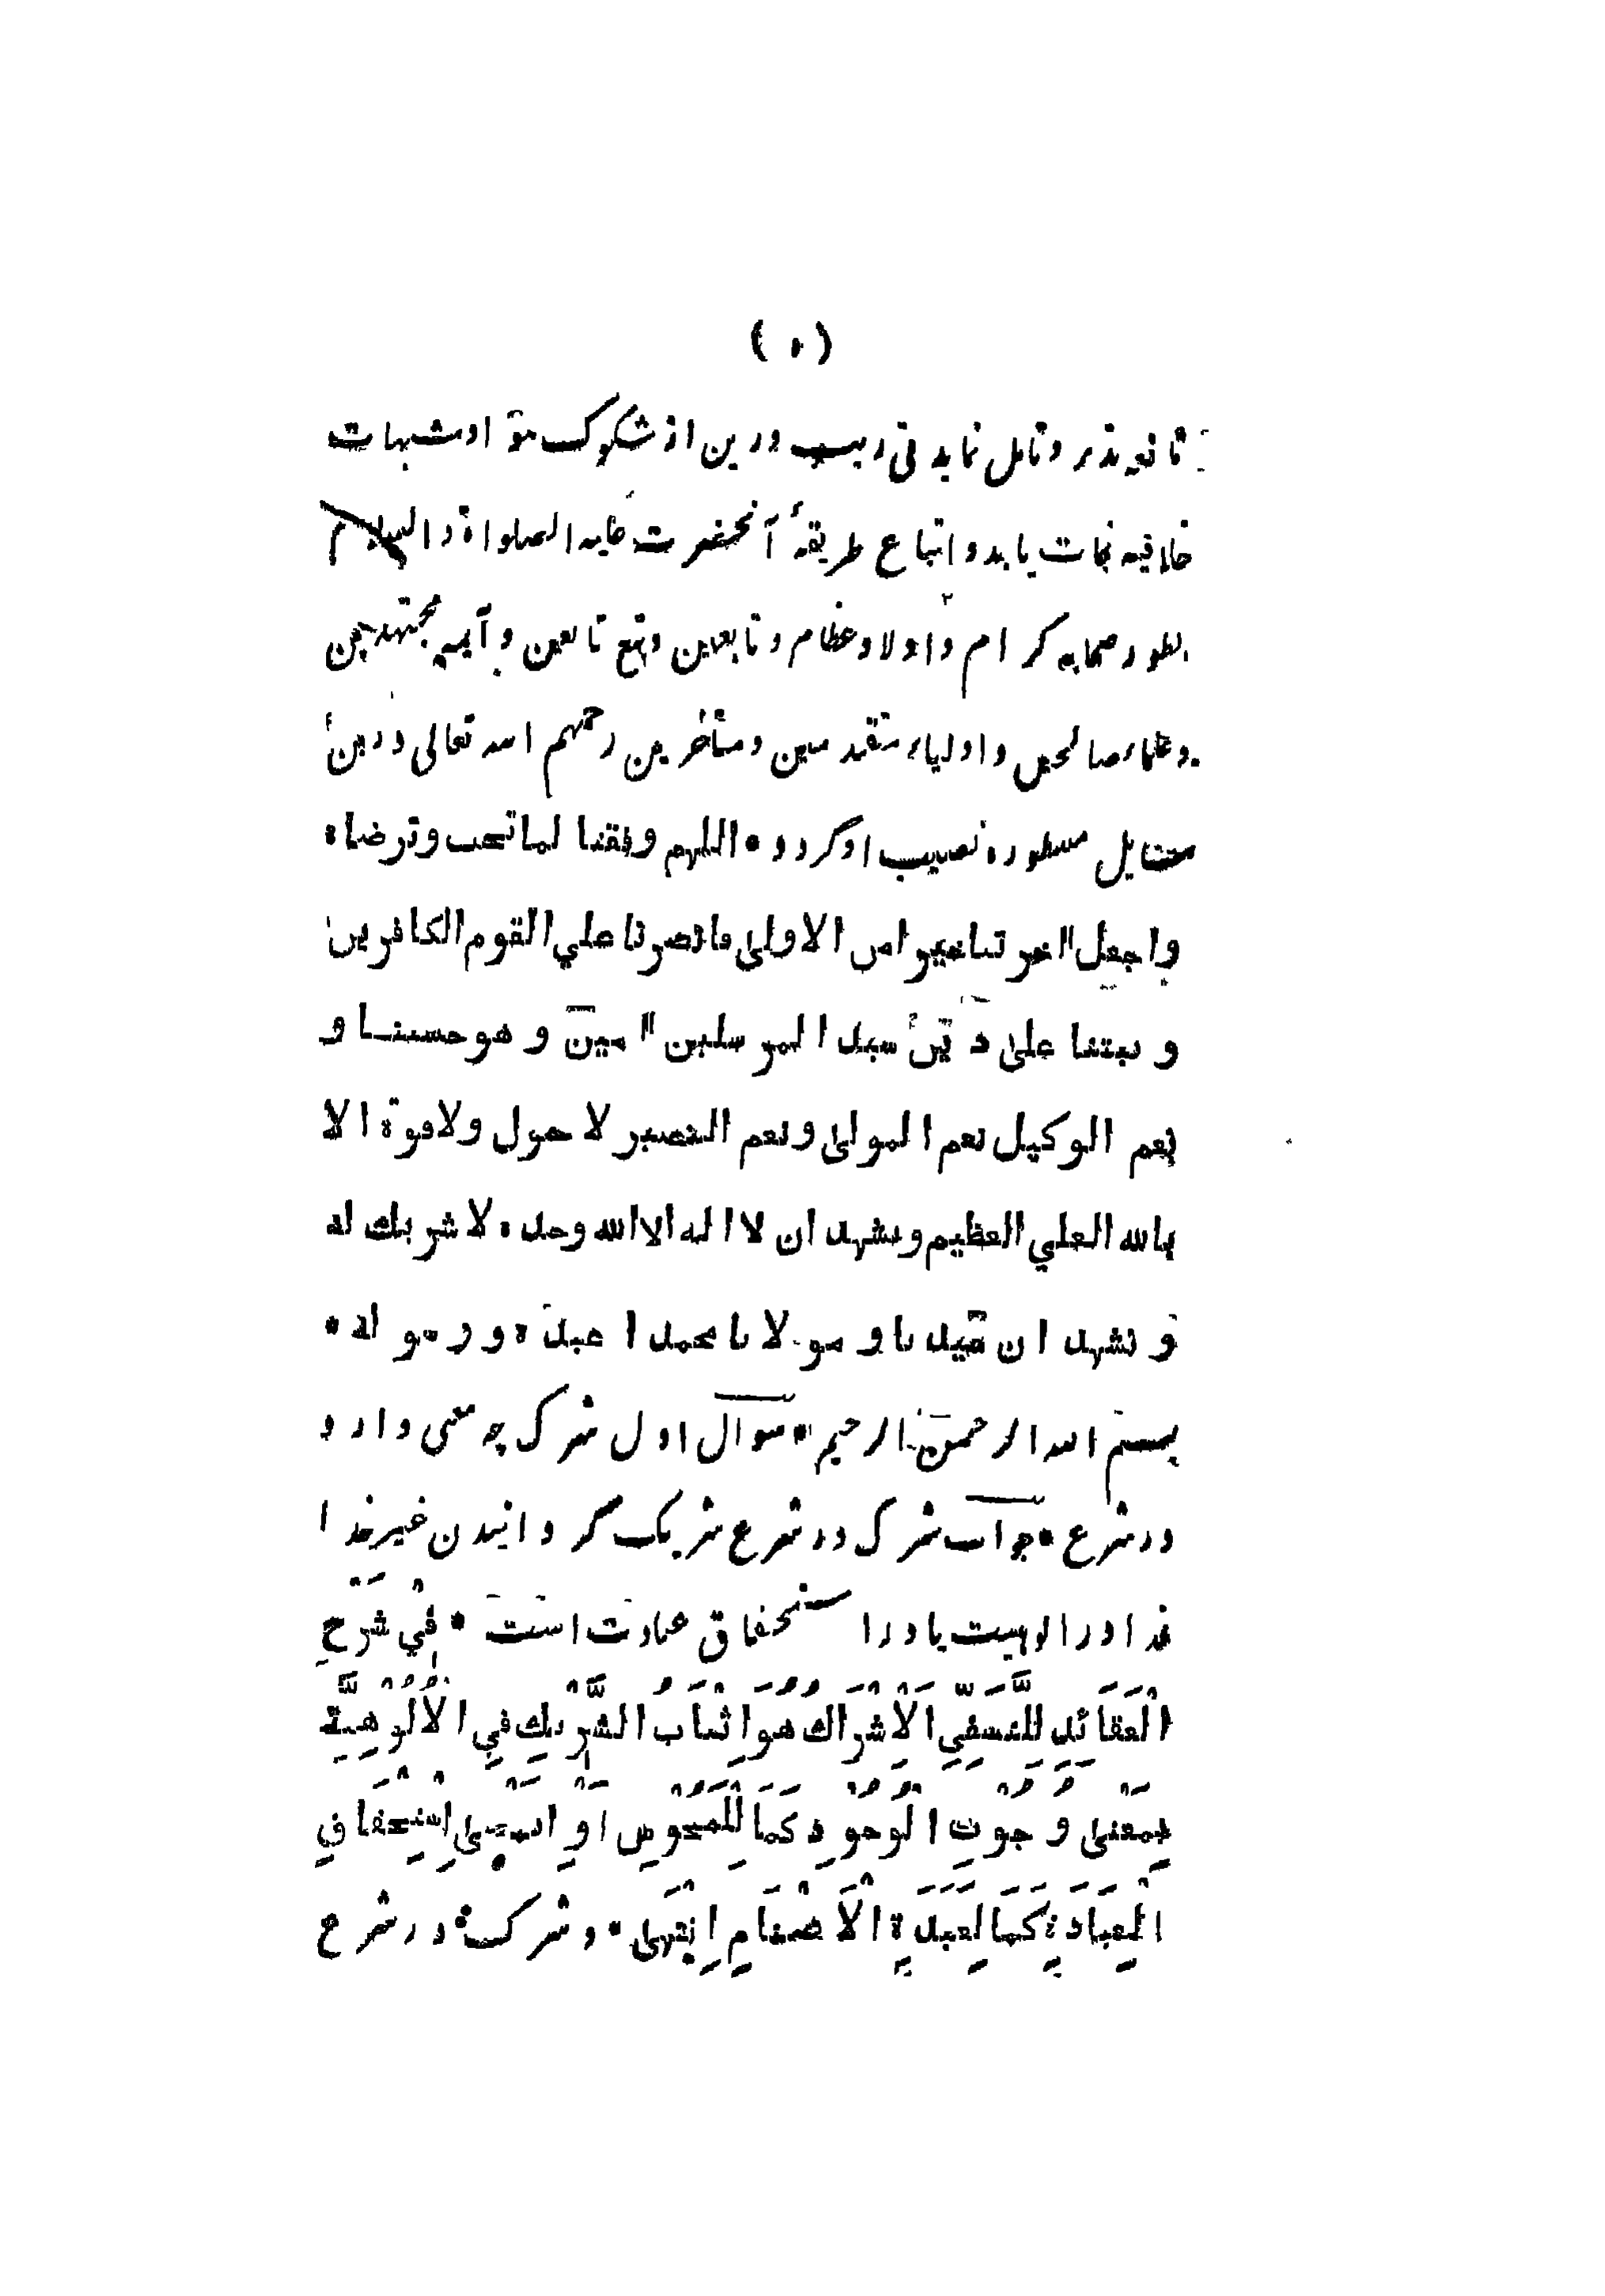 ( ۵ )
تدبر و تامل نماید فی ریب ورین از شکوک و شبهات
خلافیه نجات یابد و اتباع طریقهٔ آنحضرت علیه الصلواة و السلام
بطور صحابه کرام و اولاد عظام و تابعین و تبع تابعین و آیمه مجتهدین
و علماء صالحین و اولیاء متقدمین و متأخرین رحمهم الله تعالی درین
مسایل مسطوره نصیب او گردد * اللهم وفقنا لما تحب و ترضاه
واجعل اخرتنا خیرا من الاولی فانصرنا علي القوم الکافرین
و ثبتنا علی دین سید المرسلین امین و هو حسبنا و
نعم الوکیل نعم المولی و نعم النصیر لا حول ولا قوة الا
بالله العلي العظیم و نشهد ان لا اله الا الله وحده لا شریك له
و نشهد ان سیدنا و مولانا محمدا عبده و رسوله *
بسم الله الرحمن الرحیم * سوال اول شرک چه معنی دارد
در شرع * جواب شرک در شرع شریک گردانیدن غیر خدا
خدا در الوهیت یا در استحقاق عبادت است * فِي شَرْحِ
الْعَقَائِدِ لِلنَّسَفِيِّ الْاِشْرَاكُ هُوَ اِثْبَاتُ الشَّرِيْكِ فِي الْاُلُوْهِيَّةِ
بِمَعْنَى وُجُوْبِ الْوُجُوْدِ كَمَا لِلْمَجُوْسِ اَوْ بِمَعْنَى اِسْتِحْقَاقِ
الْعِبَادَةِ كَمَا لِعَبَدَةِ الْاَصْنَامِ اِنْتَهَى * و شرک در شرع